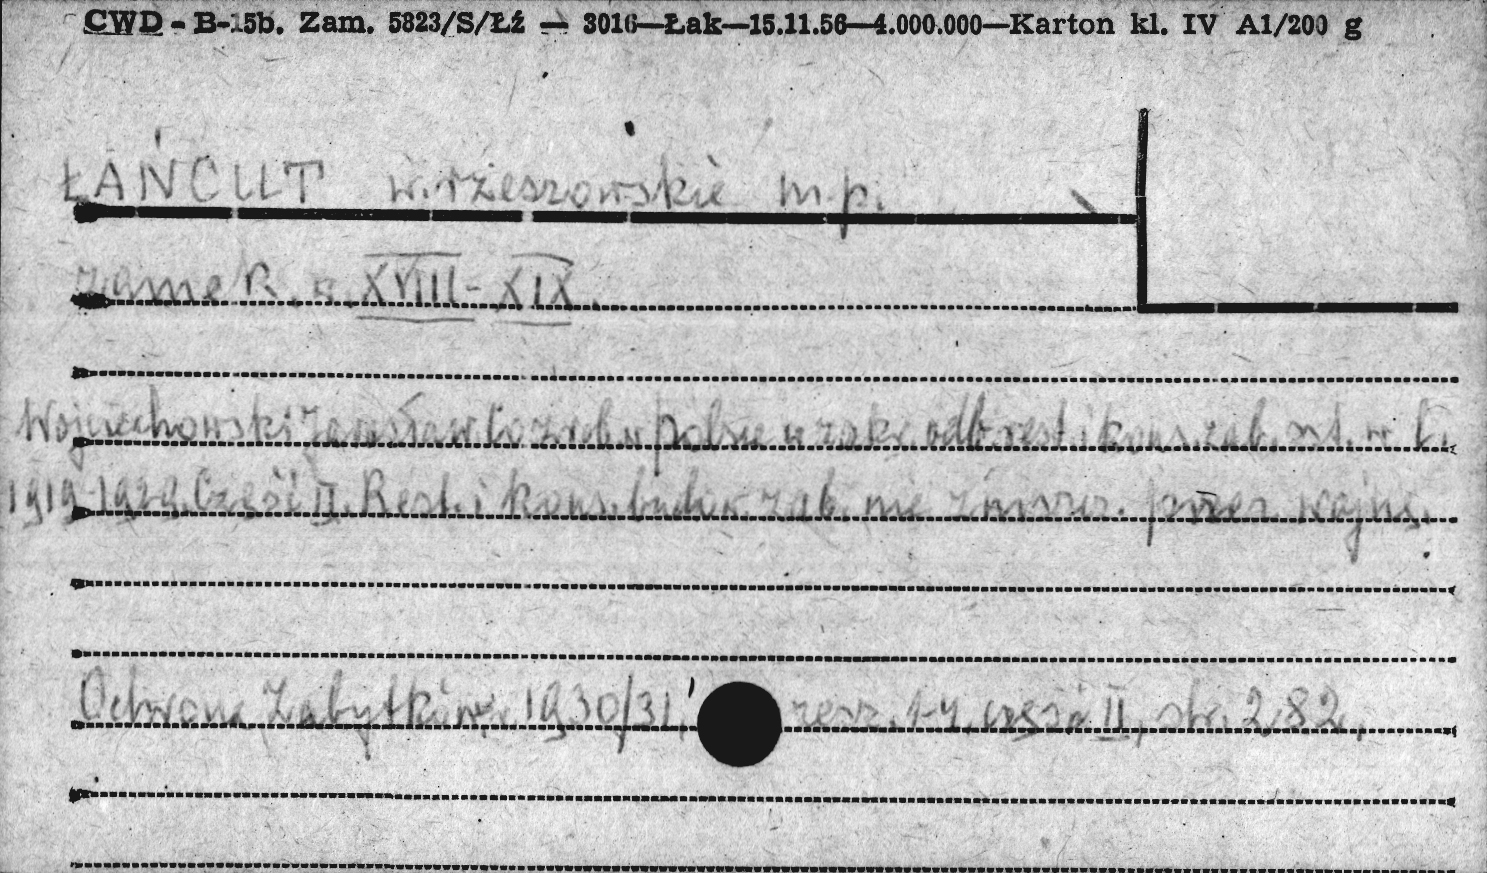 CWD - B-15b. Zam. 5823/S/Łź — 3016—Łak—15.11.56—4.000.000—Karton kl. IV A1/200 g
ŁAŃCUT w. rzeszowskie m.p.
zamek, w. XVIII - XIX.
Wojciechowski Jarosław w Polsce w zakr. odb. rest. i kons. zab. szt. w l.
1919-1929. Część II. Rest. i kons. budow. zab. nie zniszcz. przez wojnę.
Ochrona Zabytków, 1930/31, zesz. 1-4, część II, str. 282.